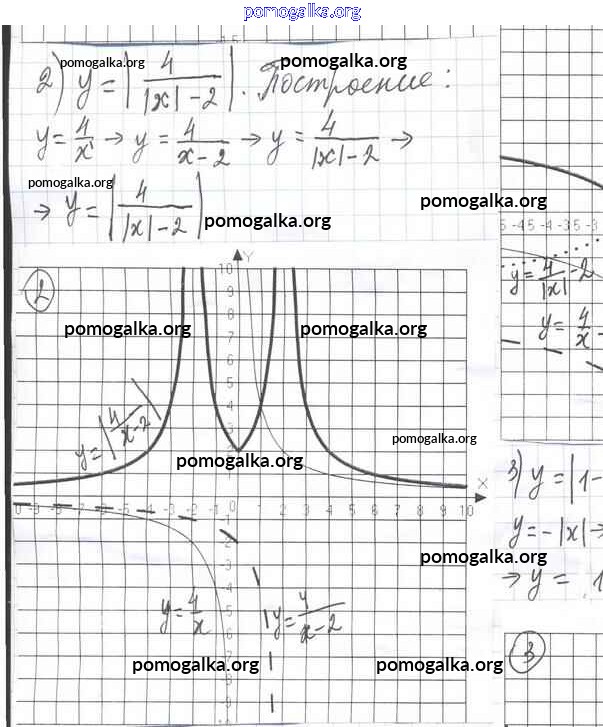 pomogalka.org
2) y = |4/(|x| - 2)|. Построение:
pomogalka.org pomogalka.org
y = 4/x → y = 4/(x - 2) → y = 4/(|x| - 2) →
pomogalka.org
→ y = |4/(|x| - 2)|
pomogalka.org
pomogalka.org
-5 -4.5 -4 -3.5 -3
y = 4/|x| - 2
y = 4/x -
2
Y
10
9
8
7
6
5
4
3
2
pomogalka.org pomogalka.org
y = |4/(x - 2)|
pomogalka.org
pomogalka.org
X
0 -9 -8 -7 -6 -5 -4 -3 -2 0 1 2 3 4 5 6 7 8 9 10
-1
-2
-4
-5
-6
-8
-9
y = 4/x
y = 4/(x - 2)
pomogalka.org
pomogalka.org pomogalka.org
3) y = |1 -
y = -|x| →
→ y = 1
3